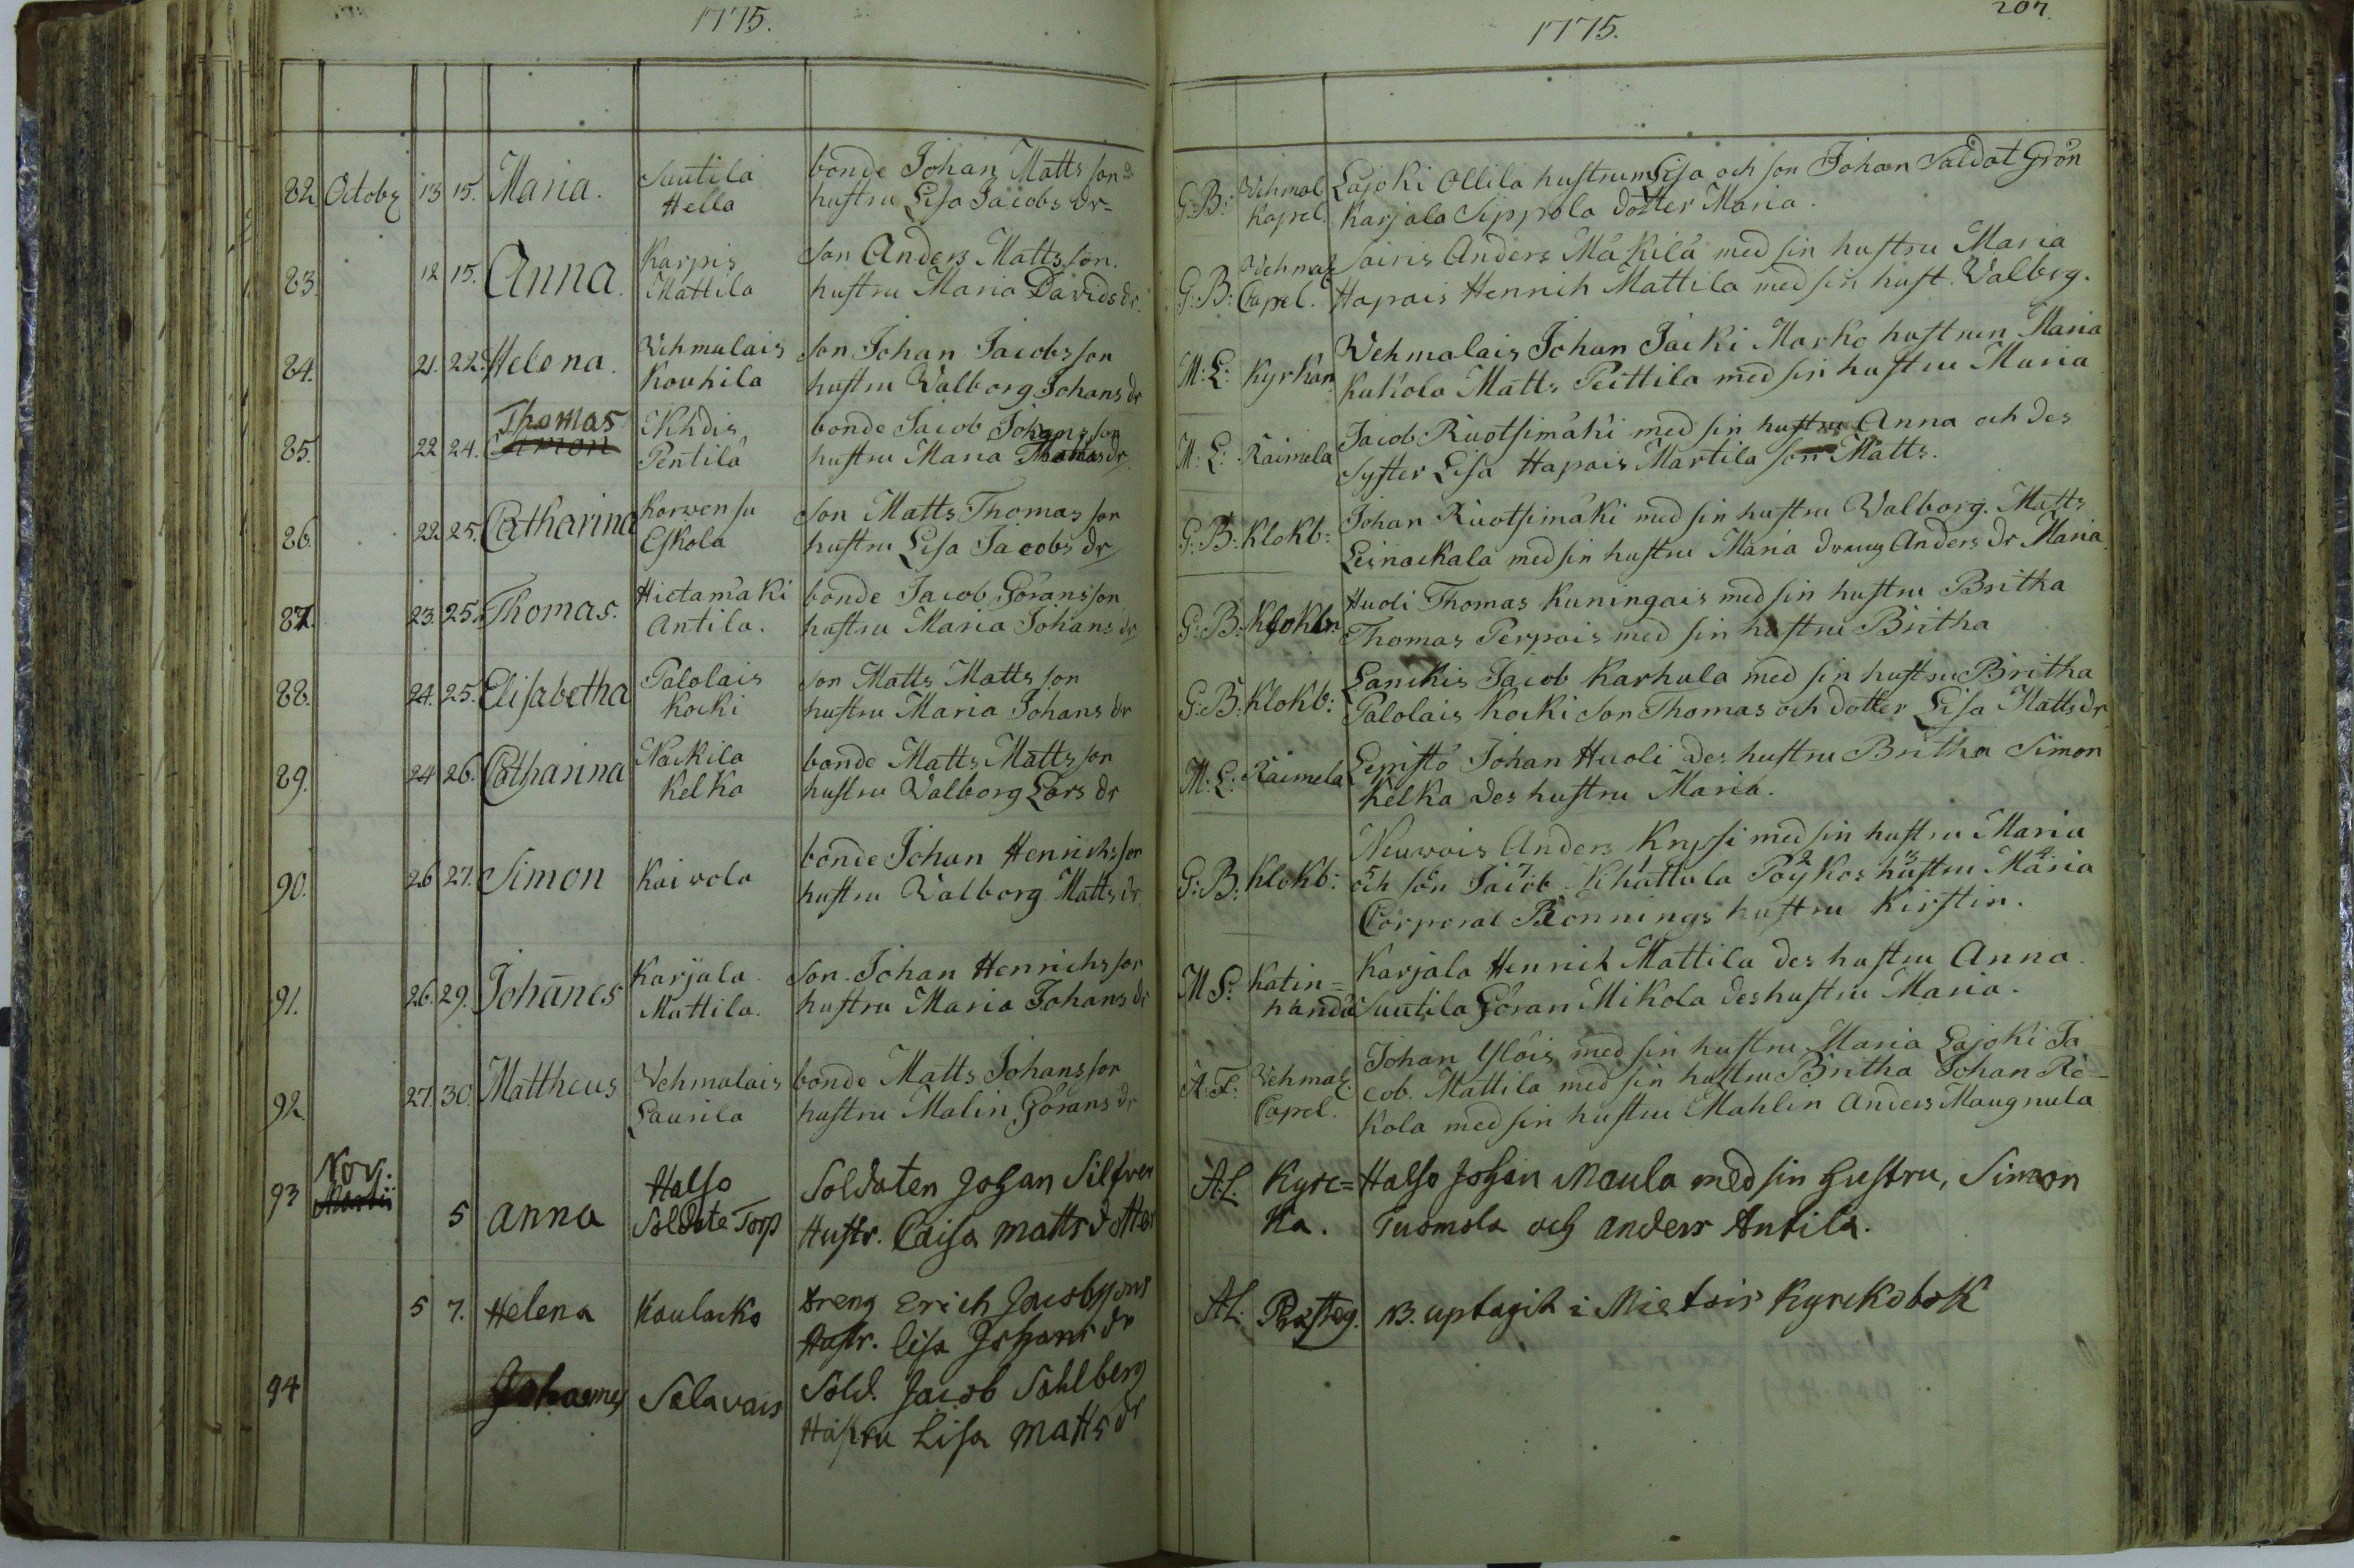 1775.
82. Octobr 13 15. Maria. Suutila bonde Johan Matts son
Hella hustru Lisa Jacobs dr
83. 12 15. Anna. Karpis son Anders Matts son.
Mattila hustru Maria Davids dr.
84. 21. 22. Helena. Vehmalais son Johan Jacobs son
Kouhila hustru Valborg Johans dr
85. 22 24. Thomas bonde Jacob Johans son
Pentilä hustru Maria Thomas dr
86. 22. 25. Catharina Korvensu son Matts Thomas son
Eskola hustru Lisa Jacobs dr
87. 23. 25. Thomas. Hietamäki bonde Jacob Görans son
Antila. hustru Maria Johans dr
88. 24. 25. Elisabetha Palolais son Matts Matts son
Kocki hustru Maria Johans dr
89. 24 26. Catharina Nackila bonde Matts Matts son
Kelka hustru Valborg Lars dr
90. 26 27. Simon Kaivola bonde Johan Henrichs son
hustru Valborg Matts dr
91. 26. 29. Johanes Karjala son Johan Henrichs son
Mattila. hustru Maria Johans dr
92. 27. 30. Mattheus Vehmalais bonde Matts Johans son
Laurila hustru Malin Görans dr
93 Nov: Martii 5 Anna Halso Soldaten Johan Silfver
Soldate Torp Hustr. Caisa Matts dotter
5 7. Helena Kaulacko dreng Erich Jacobssons
Hustr. Lisa Johans dr
94 Johannes Salavais Sold. Jacob Sahlberg
Hustru Lisa Matts dr
1775.
207.
G: B: Vehmal Lajoki Ollila hustrun Lisa och son Johan Saldat Grön
Kapel. Karjala Sippola dotter Maria.
G: B: Vehmal Sairis Anders Mäkilä med sin hustru Maria
Capel. Hapais Henrich Mattila med sin hust. Valbrg.
M: L: Kyrkan Vehmalais Johan Jacki Marko hustrun Maria
Kukola Matts Peittila med sin hustru Maria
M: L: Raimela Jacob Ruotsimäki med sin hustru Anna och des
Syster Lisa Hapais Martila son Matts.
G: B: Klokb: Johan Ruotsimäki med sin hustru Valborg. Matts
Leinackala med sin hustru Maria Anders dr Maria
G: B: Klokbr. Huoli Thomas Kuningais med sin hustru Britha
Thomas Perpois med sin hustru Britha
G: B: Klokb: Lanckis Jacob Karhula med sin hustru Britha
Palolais Kocki son Thomas och dotter Lisa Matts dr
M: L: Raimela Lepistö Johan Huoli des hustru Britha Simon
Kelka des hustru Maria.
G: B: Klokb: Neuvois Anders Krypsi med sin hustru Maria
och son Jacob. Khattula Pöykos hustru Maria
Corporal Bonnings hustru Kirstin.
M L: Katin= Karjala Henrich Mattila des hustru Anna.
handa Suutila Göran Mikola des hustru Maria.
A: F: Vehmal. Johan Ylöis med sin hustru Maria Lajoki Ja
Capel. cob. Mattila med sin hustru Britha Johan Re-
kola med sin hustru Mahlin Anders Maugnula
A.L. Kyrc= Halso Johan Maula med sin hustru, Simon
ka. Tuomola och Anders Antila.
A.L. Prästeg. B. uptagit i Mietois Kyrckobok